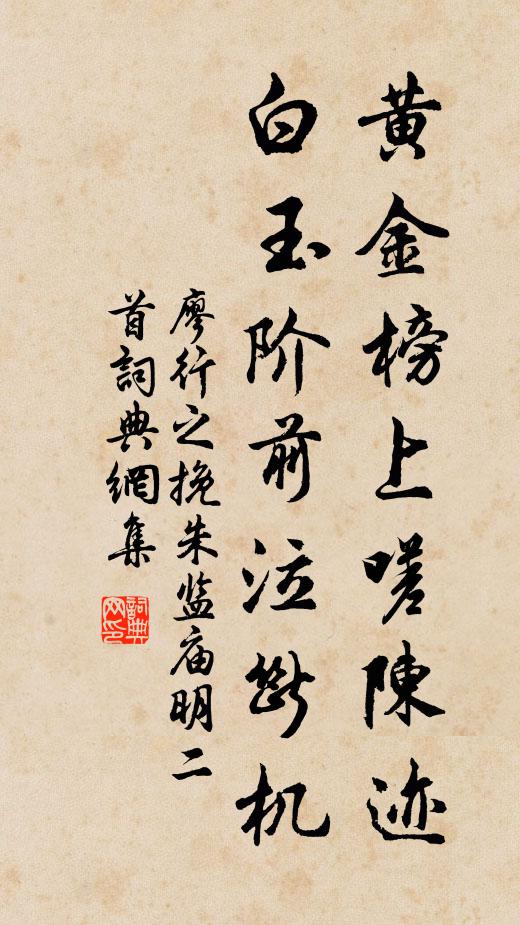 黄金榜上嗟陳迹
白玉阶前泣斷机
廖行之挽朱监庙明二
首詞典網集
詞典网印